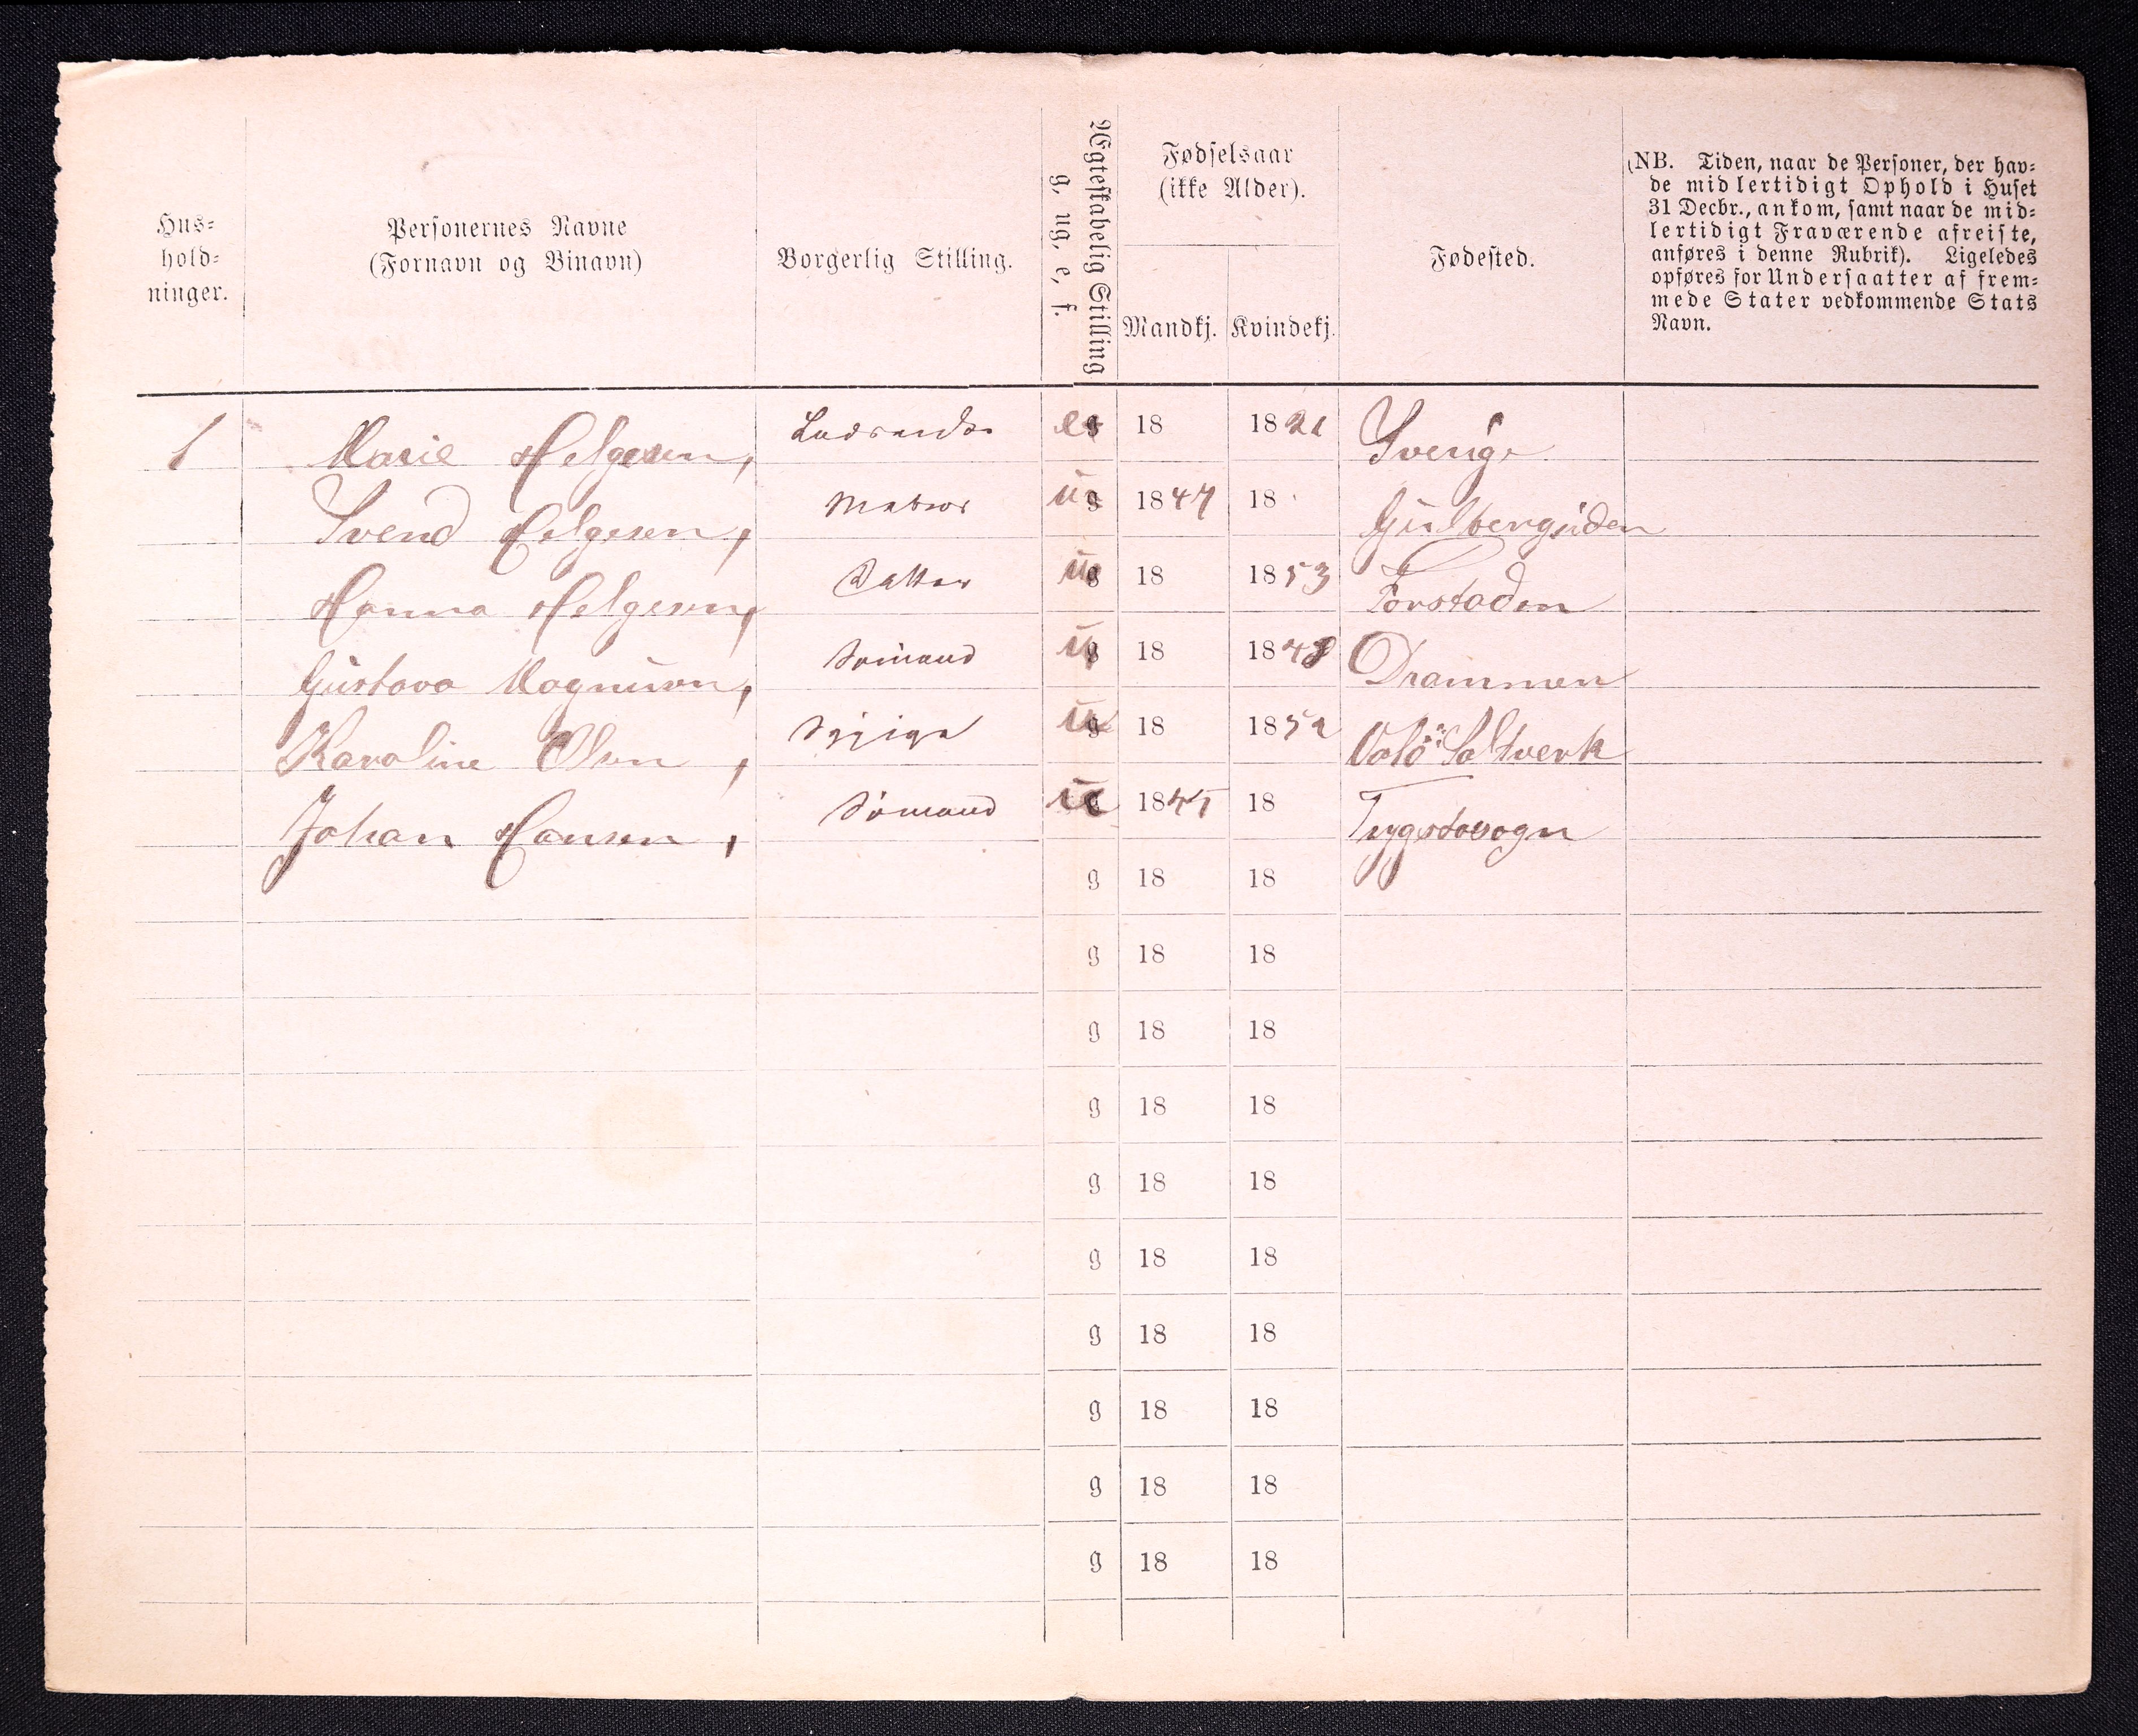 Hus-
hold-
ninger.
Personernes Navne
(Fornavn og Binavn)
Borgerlig Stilling.
Ægteskabelig Stilling
g, ug, e, f.
Fødselsaar
(ikke Alder).
Mandkj. Kvindekj.
Fødested.
(NB. Tiden, naar de Personer, der hav-
de midlertidigt Ophold i Huset
31 Decbr., ankom, samt naar de mid-
lertidigt Fraværende afreiste,
anføres i denne Rubrik). Ligeledes
opføres for Undersaatter af frem-
mede Stater vedkommende Stats
Navn.
1 Marie Helgesen, e 18 1821 Sverige
Svend Helgesen, Matros ug 1847 18 Gulbergsiden
Hanna Helgesen, Datter ug 18 1853 Forstaden
Gustava Magnusen, ug 18 1848 Drammen
Karoline Olsen, Sypige ug 18 1852 Valö Saltverk
Johan Hansen, Sömand 1845 18
g 18 18
g 18 18
g 18 18
g 18 18
g 18 18
g 18 18
g 18 18
g 18 18
g 18 18
g 18 18